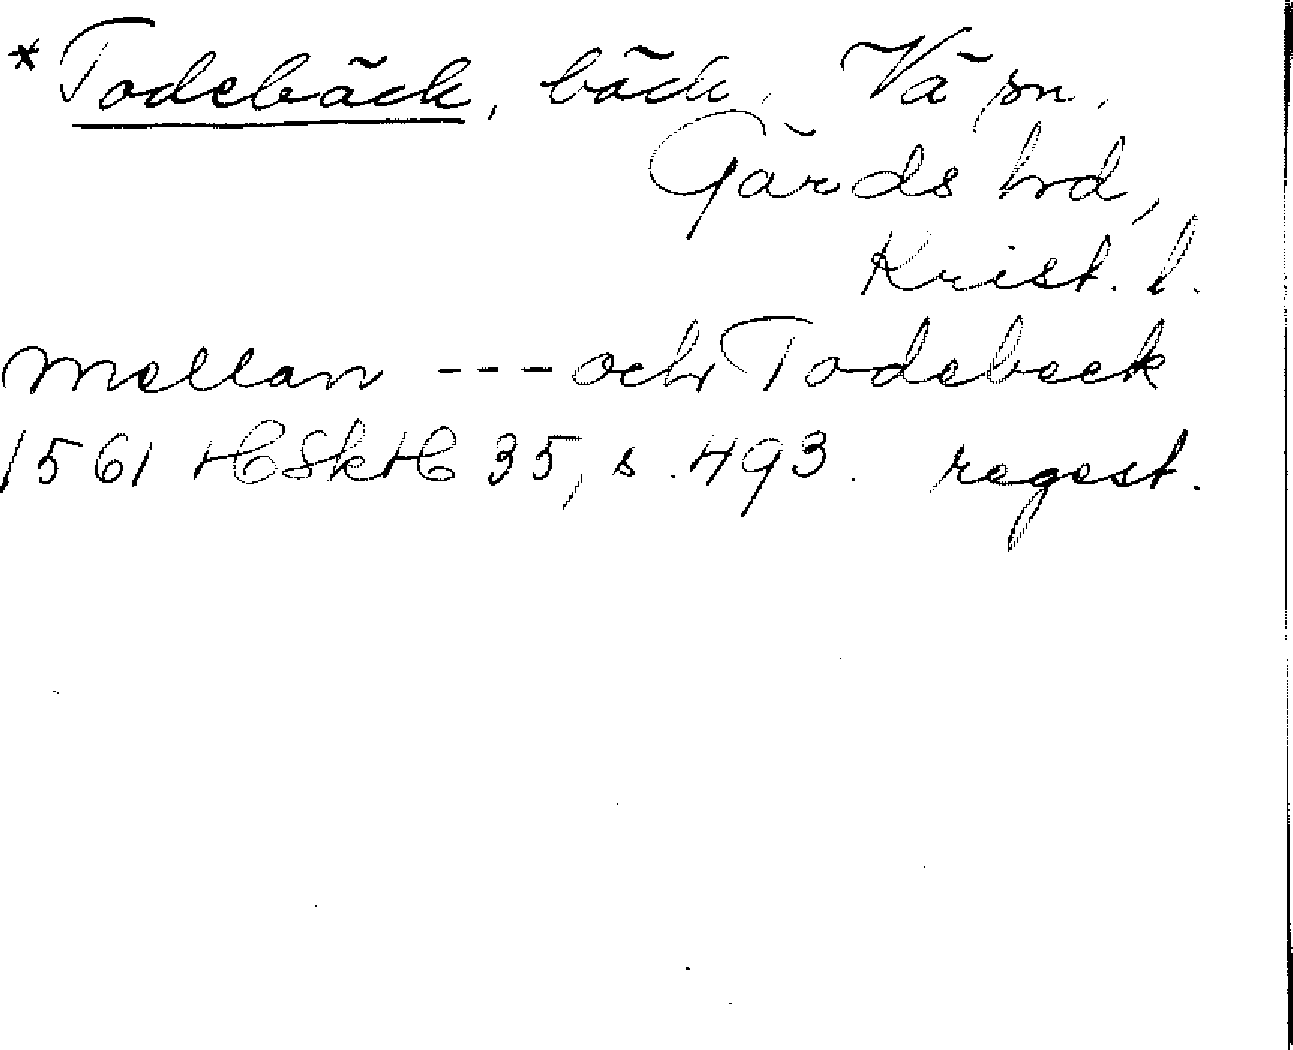 * Todebäck, bäck, Vä sn,
Gärds hrd,
Krist. l.
mellan --- och Todebeck
1561 HSkH 35, s. 493. regest.